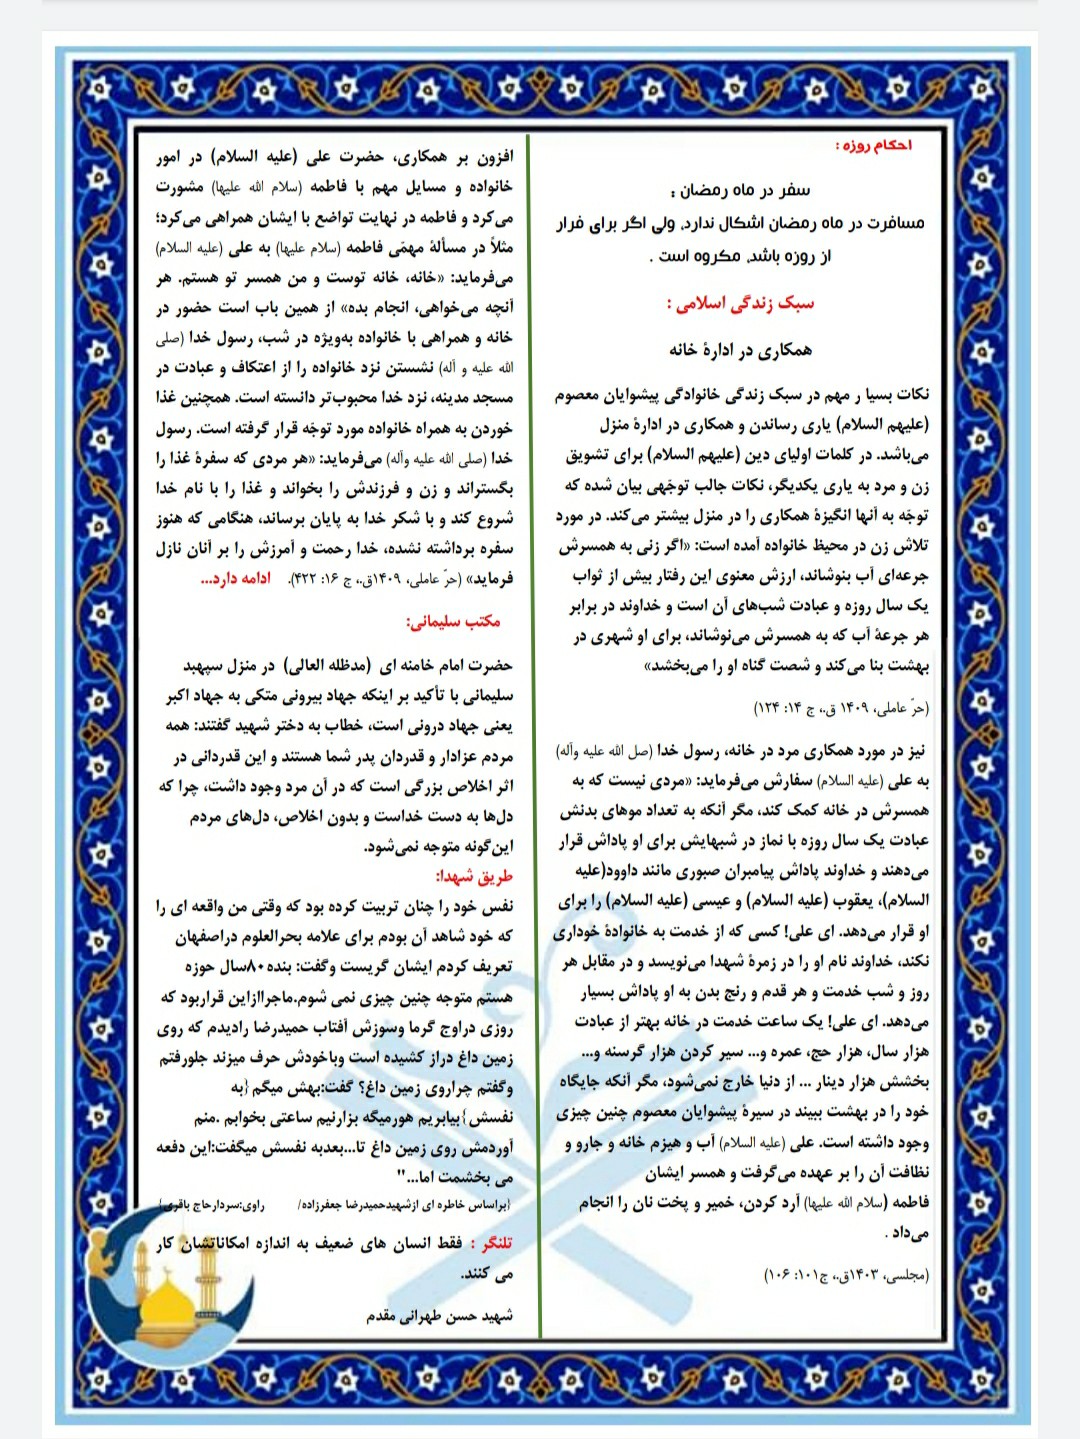 احکام روزه :
سفر در ماه رمضان :
مسافرت در ماه رمضان اشکال ندارد، ولی اگر برای فرار
از روزه باشد، مکروه است .
سبک زندگی اسلامی :
همکاری در ادارهٔ خانه
نکات بسیا ر مهم در سبک زندگی خانوادگی پیشوایان معصوم
(علیهم السلام) یاری رساندن و همکاری در ادارهٔ منزل
می‌باشد. در کلمات اولیای دین (علیهم السلام) برای تشویق
زن و مرد به یاری یکدیگر، نکات جالب توجّهی بیان شده که
توجّه به آنها انگیزهٔ همکاری را در منزل بیشتر می‌کند. در مورد
تلاش زن در محیط خانواده آمده است: «اگر زنی به همسرش
جرعه‌ای آب بنوشاند، ارزش معنوی این رفتار بیش از ثواب
یک سال روزه و عبادت شب‌های آن است و خداوند در برابر
هر جرعهٔ آب که به همسرش می‌نوشاند، برای او شهری در
بهشت بنا می‌کند و شصت گناه او را می‌بخشد»
(حرّ عاملی، ۱۴۰۹ ق.، ج ۱۴: ۱۲۴)
نیز در مورد همکاری مرد در خانه، رسول خدا (صل الله علیه وآله)
به علی (علیه السلام) سفارش می‌فرماید: «مردی نیست که به
همسرش در خانه کمک کند، مگر آنکه به تعداد موهای بدنش
عبادت یک سال روزه با نماز در شبهایش برای او پاداش قرار
می‌دهند و خداوند پاداش پیامبران صبوری مانند داوود(علیه
السلام)، یعقوب (علیه السلام) و عیسی (علیه السلام) را برای
او قرار می‌دهد. ای علی! کسی که از خدمت به خانوادهٔ خودداری
نکند، خداوند نام او را در زمرهٔ شهدا می‌نویسد و در مقابل هر
روز و شب خدمت و هر قدم و رنج بدن به او پاداش بسیار
می‌دهد. ای علی! یک ساعت خدمت در خانه بهتر از عبادت
هزار سال، هزار حج، عمره و... سیر کردن هزار گرسنه و...
بخشش هزار دینار ... از دنیا خارج نمی‌شود، مگر آنکه جایگاه
خود را در بهشت ببیند در سیرهٔ پیشوایان معصوم چنین چیزی
وجود داشته است. علی (علیه السلام) آب و هیزم خانه و جارو و
نظافت آن را بر عهده می‌گرفت و همسر ایشان
فاطمه (سلام الله علیها) آرد کردن، خمیر و پخت نان را انجام
می‌داد .
(مجلسی، ۱۴۰۳ق.، ج۱۰۱: ۱۰۶)
افزون بر همکاری، حضرت علی (علیه السلام) در امور
خانواده و مسایل مهم با فاطمه (سلام الله علیها) مشورت
می‌کرد و فاطمه در نهایت تواضع با ایشان همراهی می‌کرد؛
مثلاً در مسألهٔ مهمّی فاطمه (سلام علیها) به علی (علیه السلام)
می‌فرماید: «خانه، خانه توست و من همسر تو هستم. هر
آنچه می‌خواهی، انجام بده» از همین باب است حضور در
خانه و همراهی با خانواده به‌ویژه در شب، رسول خدا (صلی
الله علیه و آله) نشستن نزد خانواده را از اعتکاف و عبادت در
مسجد مدینه، نزد خدا محبوب‌تر دانسته است. همچنین غذا
خوردن به همراه خانواده مورد توجّه قرار گرفته است. رسول
خدا (صلی الله علیه وآله) می‌فرماید: «هر مردی که سفرهٔ غذا را
بگستراند و زن و فرزندش را بخواند و غذا را با نام خدا
شروع کند و با شکر خدا به پایان برساند، هنگامی که هنوز
سفره برداشته نشده، خدا رحمت و آمرزش را بر آنان نازل
فرماید» (حرّ عاملی، ۱۴۰۹ق.، ج ۱۶: ۴۲۲). ادامه دارد...
مکتب سلیمانی:
حضرت امام خامنه ای (مدظله العالی) در منزل سپهبد
سلیمانی با تأکید بر اینکه جهاد بیرونی متکی به جهاد اکبر
یعنی جهاد درونی است، خطاب به دختر شهید گفتند: همه
مردم عزادار و قدردان پدر شما هستند و این قدردانی در
اثر اخلاص بزرگی است که در آن مرد وجود داشت، چرا که
دل‌ها به دست خداست و بدون اخلاص، دل‌های مردم
این‌گونه متوجه نمی‌شود.
طریق شهدا:
نفس خود را چنان تربیت کرده بود که وقتی من واقعه ای را
که خود شاهد آن بودم برای علامه بحرالعلوم دراصفهان
تعریف کردم ایشان گریست وگفت: بنده۸۰سال حوزه
هستم متوجه چنین چیزی نمی شوم.ماجراازاین قراربود که
روزی دراوج گرما وسوزش آفتاب حمیدرضا رادیدم که روی
زمین داغ دراز کشیده است وباخودش حرف میزند جلورفتم
وگفتم چراروی زمین داغ؟ گفت:بهش میگم {به
نفسش}بیابریم هورمیگه بزارنیم ساعتی بخوابم .منم
آوردمش روی زمین داغ تا...بعدبه نفسش میگفت:این دفعه
می بخشمت اما..."
{براساس خاطره ای ازشهیدحمیدرضا جعفرزاده/ راوی:سردارحاج باقری}
تلنگر : فقط انسان های ضعیف به اندازه امکاناتشان کار
می کنند.
شهید حسن طهرانی مقدم